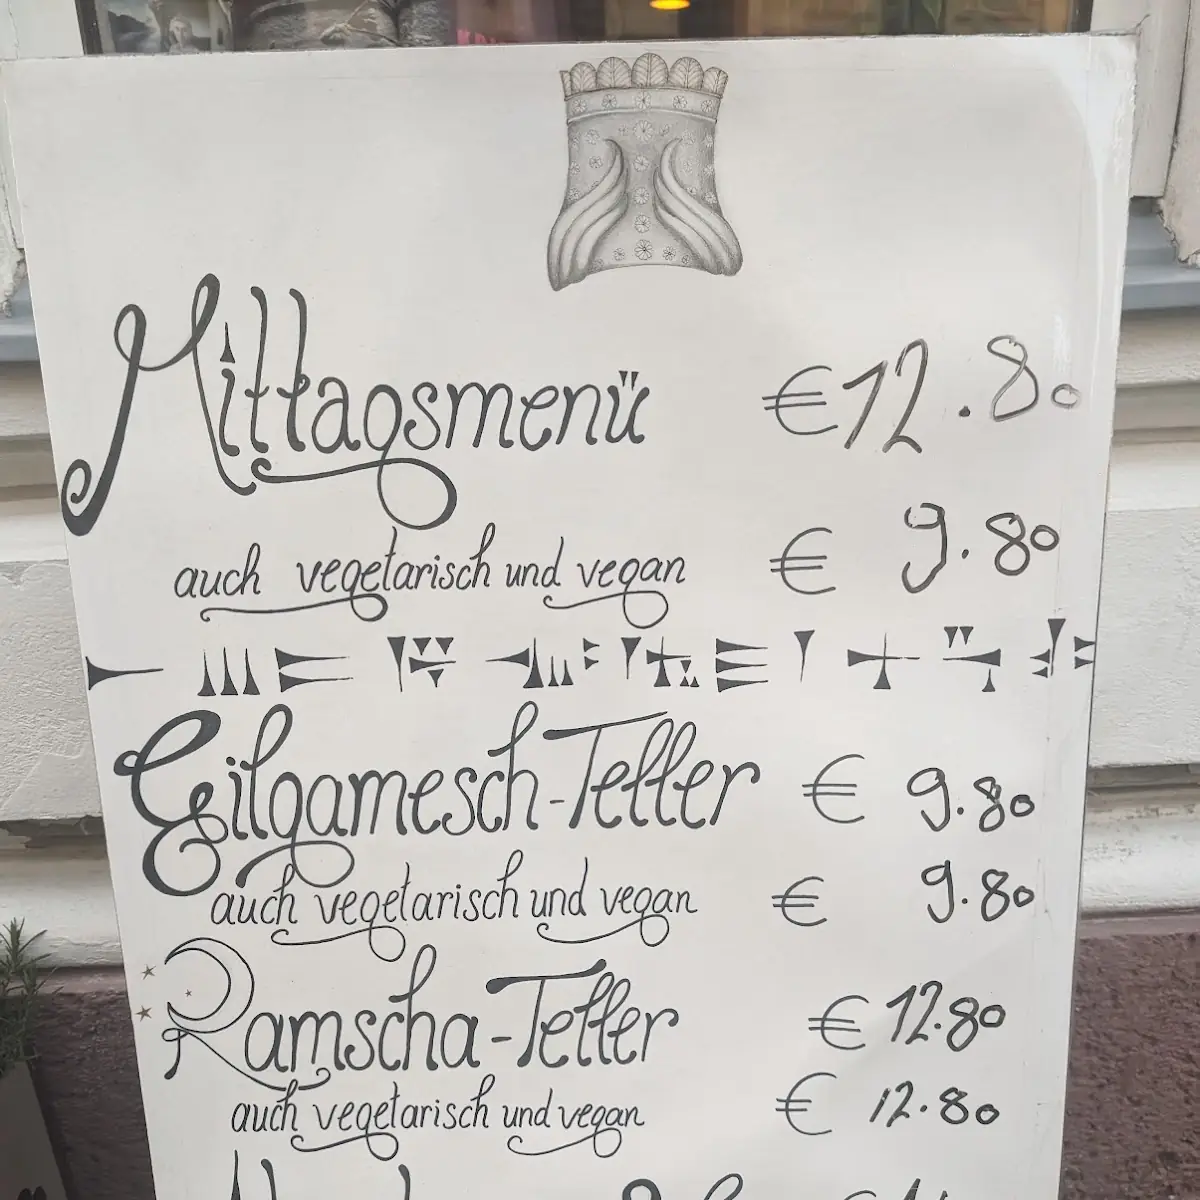 Mittagsmenü € 12.80
auch vegetarisch und vegan € 9.80
Gilgamesch-Teller € 9.80
auch vegetarisch und vegan € 9.80
Ramscha-Teller € 12.80
auch vegetarisch und vegan € 12.80